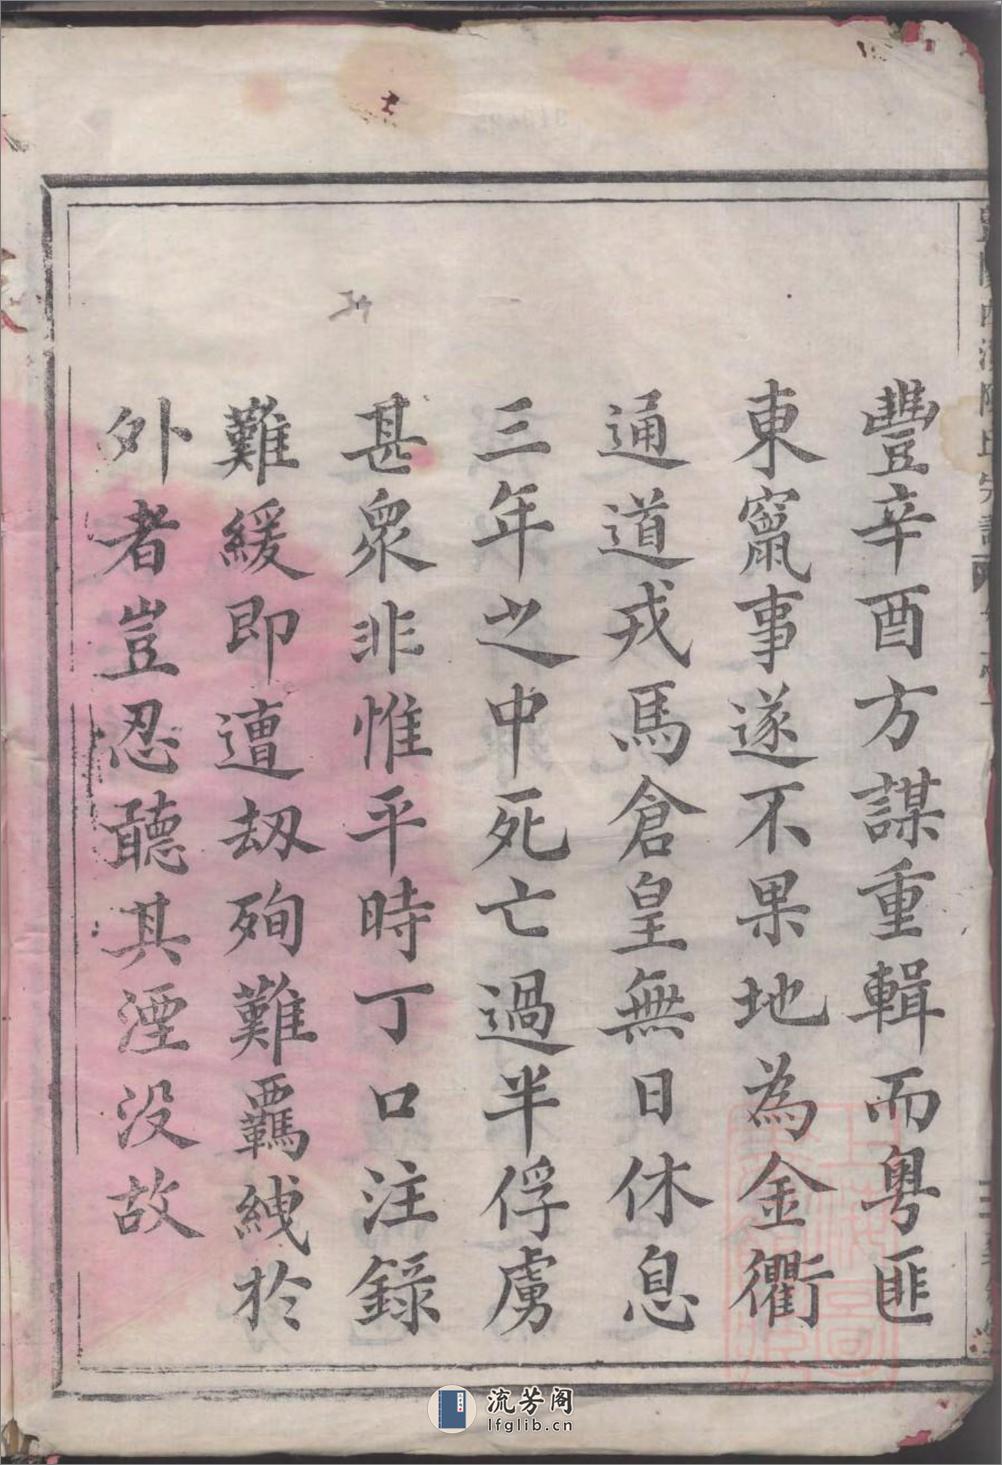 豐辛酉方謀重輯而粤匪
東竄事遂不果地為金衢
通道戎馬倉皇無日休息
三年之中死亡過半俘虜
甚衆非惟平時丁口注錄
難緩即遭刼殉難羈絏於
外者豈忍聽其湮没故
流芳阁
lfglib.cn